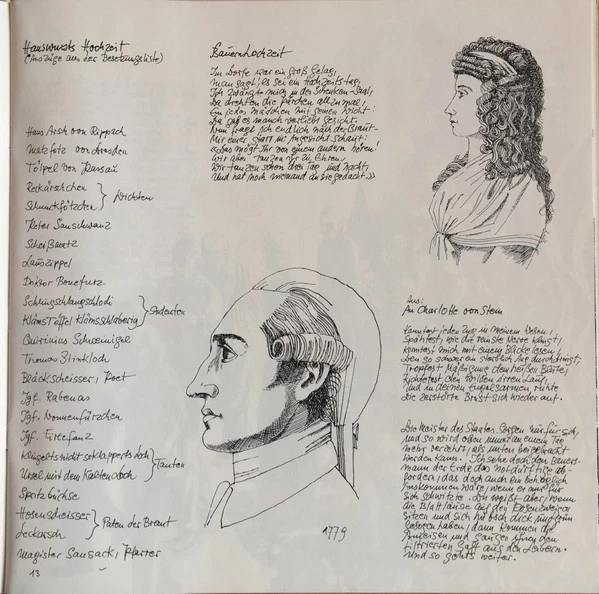 Hanswursts Hochzeit
(Auszüge aus der Besetzungsliste)
Hans Arsch von Rippach
Matzfotz von Dresden
Tölpel von Passau
Reckärschgen
Schnuckfötzchen } Nichten
Peter Sauschwanz
Scheißmatz
Lauszippel
Doktor Bonefurz
Schwingschlangschlodi
} Studenten
Quirinius Schweinigel
Thomas Stinkloch
Bläckscheisser, Poet
Jgf. Rabenas
Jgf. Nonnenfürzchen
Klingerts nicht so klapperts doch
Ursel mit dem kalten Loch } Tanten
Spritzbüchse
Hosenscheisser
Leckarsch } Paten der Braut
Magister Sausack, Pfarrer
13
Bauernhochzeit
Im Dorfe war ein groß Gelag,
Man sagt, es sei ein Hochzeitstag,
Ich zwängte mich in den Schenken-Saal,
Da drehten die Pärchen allzumal,
Ein jedes Mädchen mit seinem Wicht:
Da gab es manch verliebt Gesicht.
Nun fragt ich endlich nach der Braut -
Mir einer starr ins Angesicht schaut:
«Das mögt Ihr von einem andern hören!
Wir aber tanzen ihr zu Ehren,
Wir tanzen schon drei Tag und Nacht,
Und hat noch niemand an sie gedacht.»
1779
Aus:
An Charlotte von Stein
Kanntest jeden Zug in meinem Wesen,
Spähtest, wie die reinste Nerve klingt,
Konntest mich mit einem Blicke lesen,
Den so schwer ein sterblich Aug durchdringt;
Tropftest Mäßigung dem heißen Blute,
Richtetest den wilden irren Lauf,
Und in deinen Engelsarmen ruhte
Die zerstörte Brust sich wieder auf.
Die Meister des Staates sorgen nur für sich,
und so wird oben immer an einem Tag
mehr verzehrt, als unten beigebracht
werden kann. Ich sehe doch den Bauers-
mann der Erde das Notdürftige ab-
fordern, das doch auch ein behaglich
Auskommen wäre, wenn er nur für
sich schwitzte. Du weißt aber, wenn
die Blattläuse auf den Rosenzweigen
sitzen und sich hübsch dick und grün
gesogen haben, dann kommen die
Ameisen und saugen ihnen den
filtrierten Saft aus den Leibern.
Und so gehts weiter.